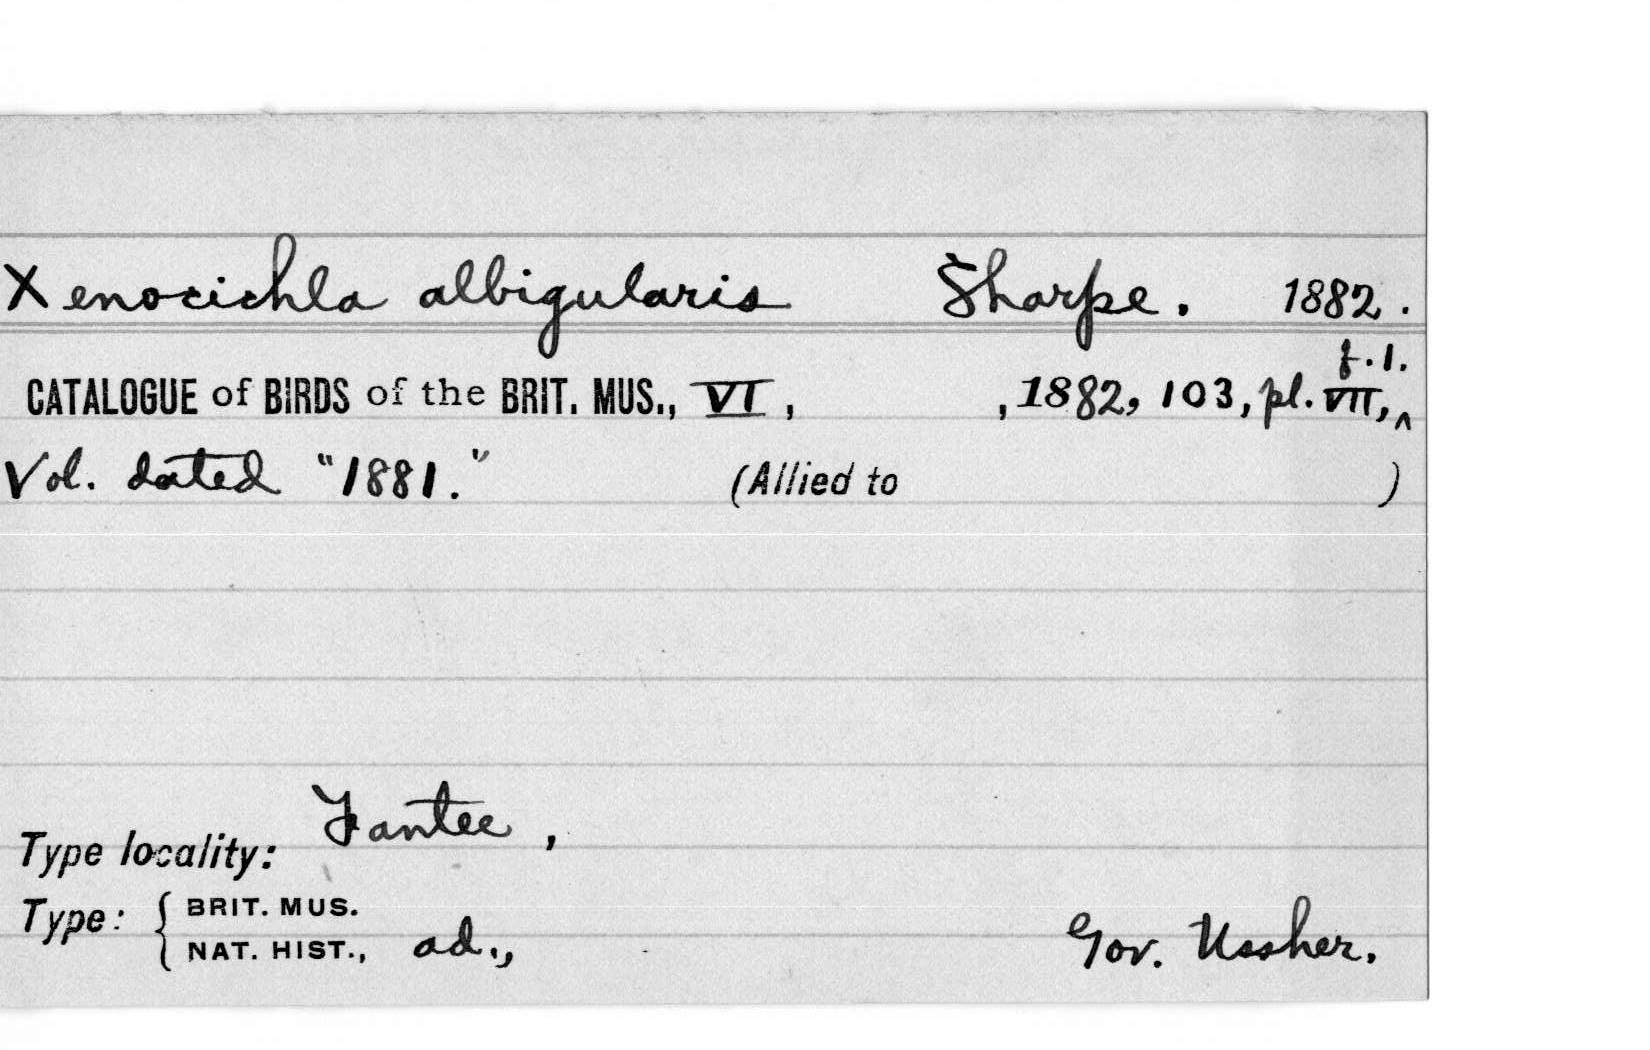 Xenocichla albigularis Sharpe. 1882.
f.1.
CATALOGUE of BIRDS of the BRIT. MUS., VI, , 1882, 103, pl. VII, ^
Vol. dated "1881." (Allied to )
Type locality: Fantee,
Type: { BRIT. MUS.
NAT. HIST., ad., Gov. Ussher.